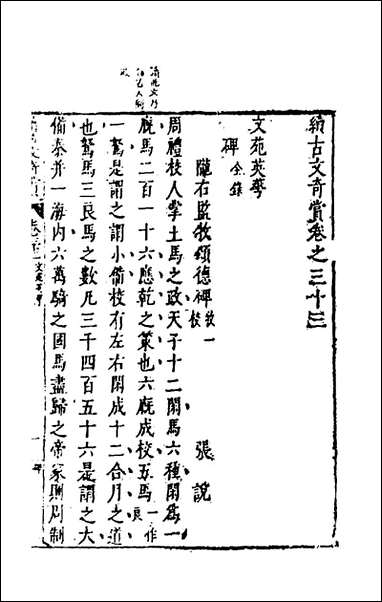 續古文奇賞卷之三十三
文苑英華
碑全錄
隴右監牧頌德碑
牧一
校
張說
周禮校人掌土馬之政天子十二閑馬六種閑為一
廐馬二百一十六應乾之策也六廐成校五馬
一作
良
一駑是謂之小備校有左右閑成十二合月之道
也駑馬三良馬之數凡三千四百五十六是謂之大
備秦并一海內六萬騎之國馬盡歸之帝家則周制